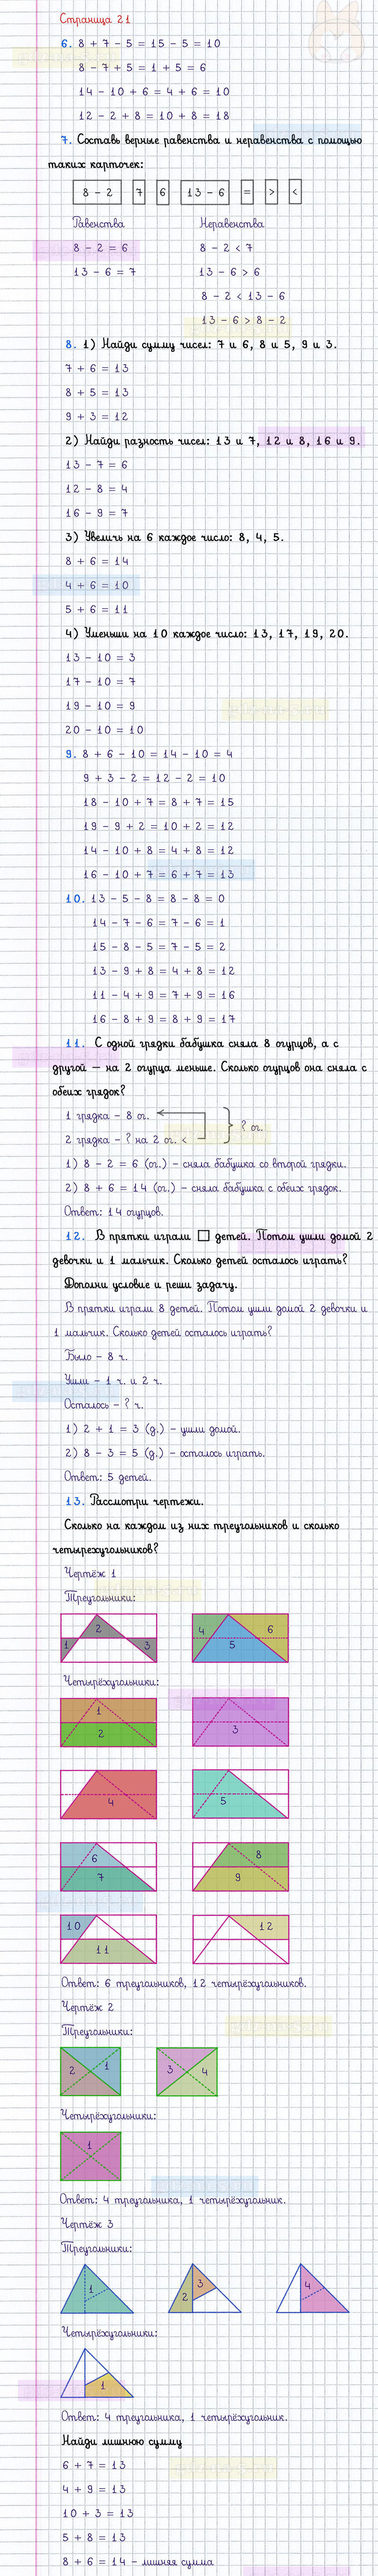 Страница 21
6. 8 + 7 - 5 = 15 - 5 = 10
8 - 7 + 5 = 1 + 5 = 6
14 - 10 + 6 = 4 + 6 = 10
12 - 2 + 8 = 10 + 8 = 18
7. Составь верные равенства и неравенства с помощью
таких карточек:
8 - 2 7 6 13 - 6 = > <
Равенства Неравенства
8 - 2 = 6 8 - 2 < 7
13 - 6 = 7 13 - 6 > 6
8 - 2 < 13 - 6
13 - 6 > 8 - 2
8. 1) Найди сумму чисел: 7 и 6, 8 и 5, 9 и 3.
7 + 6 = 13
8 + 5 = 13
9 + 3 = 12
2) Найди разность чисел: 13 и 7, 12 и 8, 16 и 9.
13 - 7 = 6
12 - 8 = 4
16 - 9 = 7
3) Увеличь на 6 каждое число: 8, 4, 5.
8 + 6 = 14
4 + 6 = 10
5 + 6 = 11
4) Уменьши на 10 каждое число: 13, 17, 19, 20.
13 - 10 = 3
17 - 10 = 7
19 - 10 = 9
20 - 10 = 10
9. 8 + 6 - 10 = 14 - 10 = 4
9 + 3 - 2 = 12 - 2 = 10
18 - 10 + 7 = 8 + 7 = 15
19 - 9 + 2 = 10 + 2 = 12
14 - 10 + 8 = 4 + 8 = 12
16 - 10 + 7 = 6 + 7 = 13
10. 13 - 5 - 8 = 8 - 8 = 0
14 - 7 - 6 = 7 - 6 = 1
15 - 8 - 5 = 7 - 5 = 2
13 - 9 + 8 = 4 + 8 = 12
11 - 4 + 9 = 7 + 9 = 16
16 - 8 + 9 = 8 + 9 = 17
11. С одной грядки бабушка сняла 8 огурцов, а с
другой — на 2 огурца меньше. Сколько огурцов она сняла с
обеих грядок?
1 грядка - 8 ог.
2 грядка - ? на 2 ог. <
? ог.
1) 8 - 2 = 6 (ог.) - сняла бабушка со второй грядки.
2) 8 + 6 = 14 (ог.) - сняла бабушка с обеих грядок.
Ответ: 14 огурцов.
12. В прятки играли □ детей. Потом ушли домой 2
девочки и 1 мальчик. Сколько детей осталось играть?
Дополни условие и реши задачу.
В прятки играли 8 детей. Потом ушли домой 2 девочки и
1 мальчик. Сколько детей осталось играть?
Было - 8 ч.
Ушли - 1 ч. и 2 ч.
Осталось - ? ч.
1) 2 + 1 = 3 (д.) - ушли домой.
2) 8 - 3 = 5 (д.) - осталось играть.
Ответ: 5 детей.
13. Рассмотри чертежи.
Сколько на каждом из них треугольников и сколько
четырехугольников?
Чертёж 1
Треугольники:
1 2 3 4 5 6
Четырёхугольники:
1
2
3
4
5
6
7
8
9
10
11
12
Ответ: 6 треугольников, 12 четырёхугольников.
Чертёж 2
Треугольники:
2 1 3 4
Четырёхугольники:
1
Ответ: 4 треугольника, 1 четырёхугольник.
Чертёж 3
Треугольники:
1 2 3 4
Четырёхугольники:
1
Ответ: 4 треугольника, 1 четырёхугольник.
Найди лишнюю сумму
6 + 7 = 13
4 + 9 = 13
10 + 3 = 13
5 + 8 = 13
8 + 6 = 14 - лишняя сумма